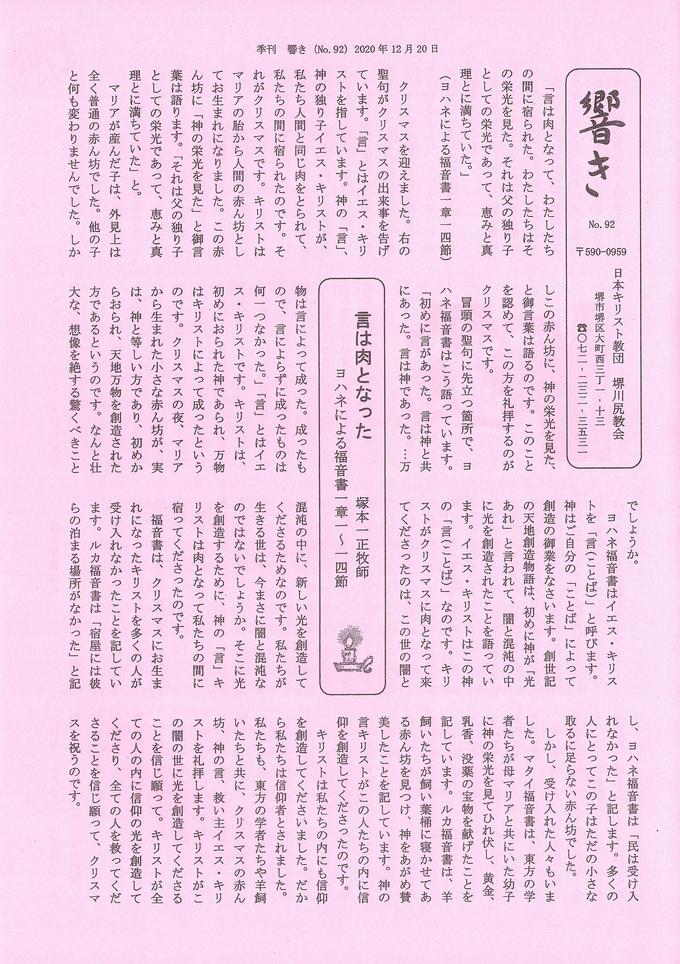 季刊 響き (No.92) 2020年12月20日
響き
No.92
〒590-0959
日本キリスト教団 堺川尻教会
堺市堺区大町西三丁一-十三
☎〇七二-二三二-三五三一
「言は肉となって、わたしたち
の間に宿られた。わたしたちはそ
の栄光を見た。それは父の独り子
としての栄光であって、恵みと真
理とに満ちていた。」
(ヨハネによる福音書一章一四節)
クリスマスを迎えました。右の
聖句がクリスマスの出来事を告げ
ています。「言」とはイエス・キリ
ストを指しています。神の「言」、
神の独り子イエス・キリストが、
私たち人間と同じ肉をとられて、
私たちの間に宿られたのです。そ
れがクリスマスです。キリストは
マリアの胎から人間の赤ん坊とし
てお生まれになりました。この赤
ん坊に「神の栄光を見た」と御言
葉は語ります。「それは父の独り子
としての栄光であって、恵みと真
理とに満ちていた」と。
マリアが産んだ子は、外見上は
全く普通の赤ん坊でした。他の子
と何も変わりませんでした。しか
しこの赤ん坊に、神の栄光を見た、
と御言葉は語るのです。このこと
を認めて、この方を礼拝するのが
クリスマスです。
冒頭の聖句に先立つ箇所で、ヨ
ハネ福音書はこう語っています。
「初めに言があった。言は神と共
にあった。言は神であった。…万
言は肉となった
ヨハネによる福音書一章一~一四節
塚本一正牧師
物は言によって成った。成ったも
ので、言によらずに成ったものは
何一つなかった。」「言」とはイエ
ス・キリストです。キリストは、
初めにおられた神であられ、万物
はキリストによって成ったという
のです。クリスマスの夜、マリア
から生まれた小さな赤ん坊が、実
は、神と等しい方であり、初めか
らおられ、天地万物を創造された
方であるというのです。なんと壮
大な、想像を絶する驚くべきこと
でしょうか。
ヨハネ福音書はイエス・キリス
トを「言(ことば)」と呼びます。
神はご自分の「ことば」によって
創造の御業をなさいます。創世記
の天地創造物語は、初めに神が「光
あれ」と言われて、闇と混沌の中
に光を創造されたことを語ってい
ます。イエス・キリストはこの神
の「言(ことば)」なのです。キリ
ストがクリスマスに肉となって来
てくださったのは、この世の闇と
混沌の中に、新しい光を創造して
くださるためなのです。私たちが
生きる世は、今まさに闇と混沌な
のではないでしょうか。そこに光
を創造するために、神の「言」キ
リストは肉となって私たちの間に
宿ってくださったのです。
福音書は、クリスマスにお生ま
れになったキリストを多くの人が
受け入れなかったことを記してい
ます。ルカ福音書は「宿屋には彼
らの泊まる場所がなかった」と記
し、ヨハネ福音書は「民は受け入
れなかった」と記します。多くの
人にとってこの子はただの小さな
取るに足らない赤ん坊でした。
しかし、受け入れた人々もいま
した。マタイ福音書は、東方の学
者たちが母マリアと共にいた幼子
に神の栄光を見てひれ伏し、黄金、
乳香、没薬の宝物を献げたことを
記しています。ルカ福音書は、羊
飼いたちが飼い葉桶に寝かせてあ
る赤ん坊を見つけ、神をあがめ賛
美したことを記しています。神の
言キリストがこの人たちの内に信
仰を創造してくださったのです。
キリストは私たちの内にも信仰
を創造してくださいました。だか
ら私たちは信仰者とされました。
私たちも、東方の学者たちや羊飼
いたちと共に、クリスマスの赤ん
坊、神の言、救い主イエス・キリ
ストを礼拝します。キリストがこ
の闇の世に光を創造してくださる
ことを信じ願って。キリストが全
ての人の内に信仰の光を創造して
くださり、全ての人を救ってくだ
さることを信じ願って、クリスマ
スを祝うのです。